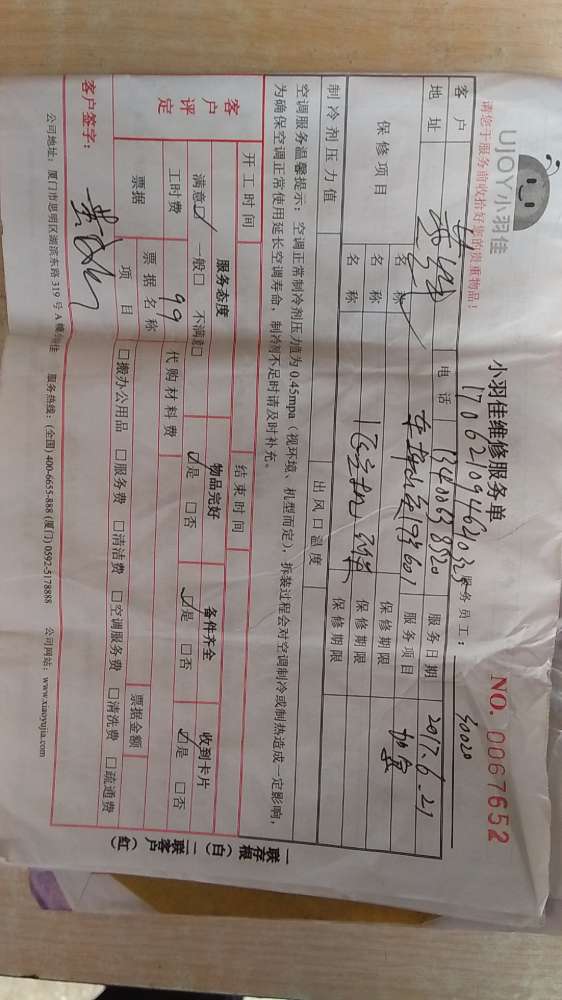 UJOY小羽佳
小羽佳维修服务单
NO. 0067652
请您于服务前收拾好您的贵重物品!
服务员工: 30020
客户 电话 服务日期 2017.6.21
地址 服务项目
保修项目 名称 保修期限
名称 保修期限
名称 保修期限
制冷剂压力值 出风口温度
空调服务温馨提示: 空调正常制冷剂压力值为 0.45mpa (视环境、机型而定), 拆装过程会对空调制冷或制热造成一定影响,
为确保空调正常使用延长空调寿命, 制冷剂不足时请及时补充。
开工时间 结束时间
客户评定 服务态度 物品完好 备件齐全 收到卡片
满意☑ 一般□ 不满意□ ☑是 □否 ☑是 □否 ☑是 □否
工时费 99 代购材料费
票据 票据名称 票据金额
项目 □搬办公用品 □服务费 □清洁费 □空调服务费 □清洗费 □疏通费
客户签字:
公司地址: 厦门市思明区湖滨东路 319 号 A 幢 服务热线: (全国) 400-6655-888 (厦门) 0592-5178888 公司网站: www.xiaoyujia.com
一联存根(白) 二联客户(红)